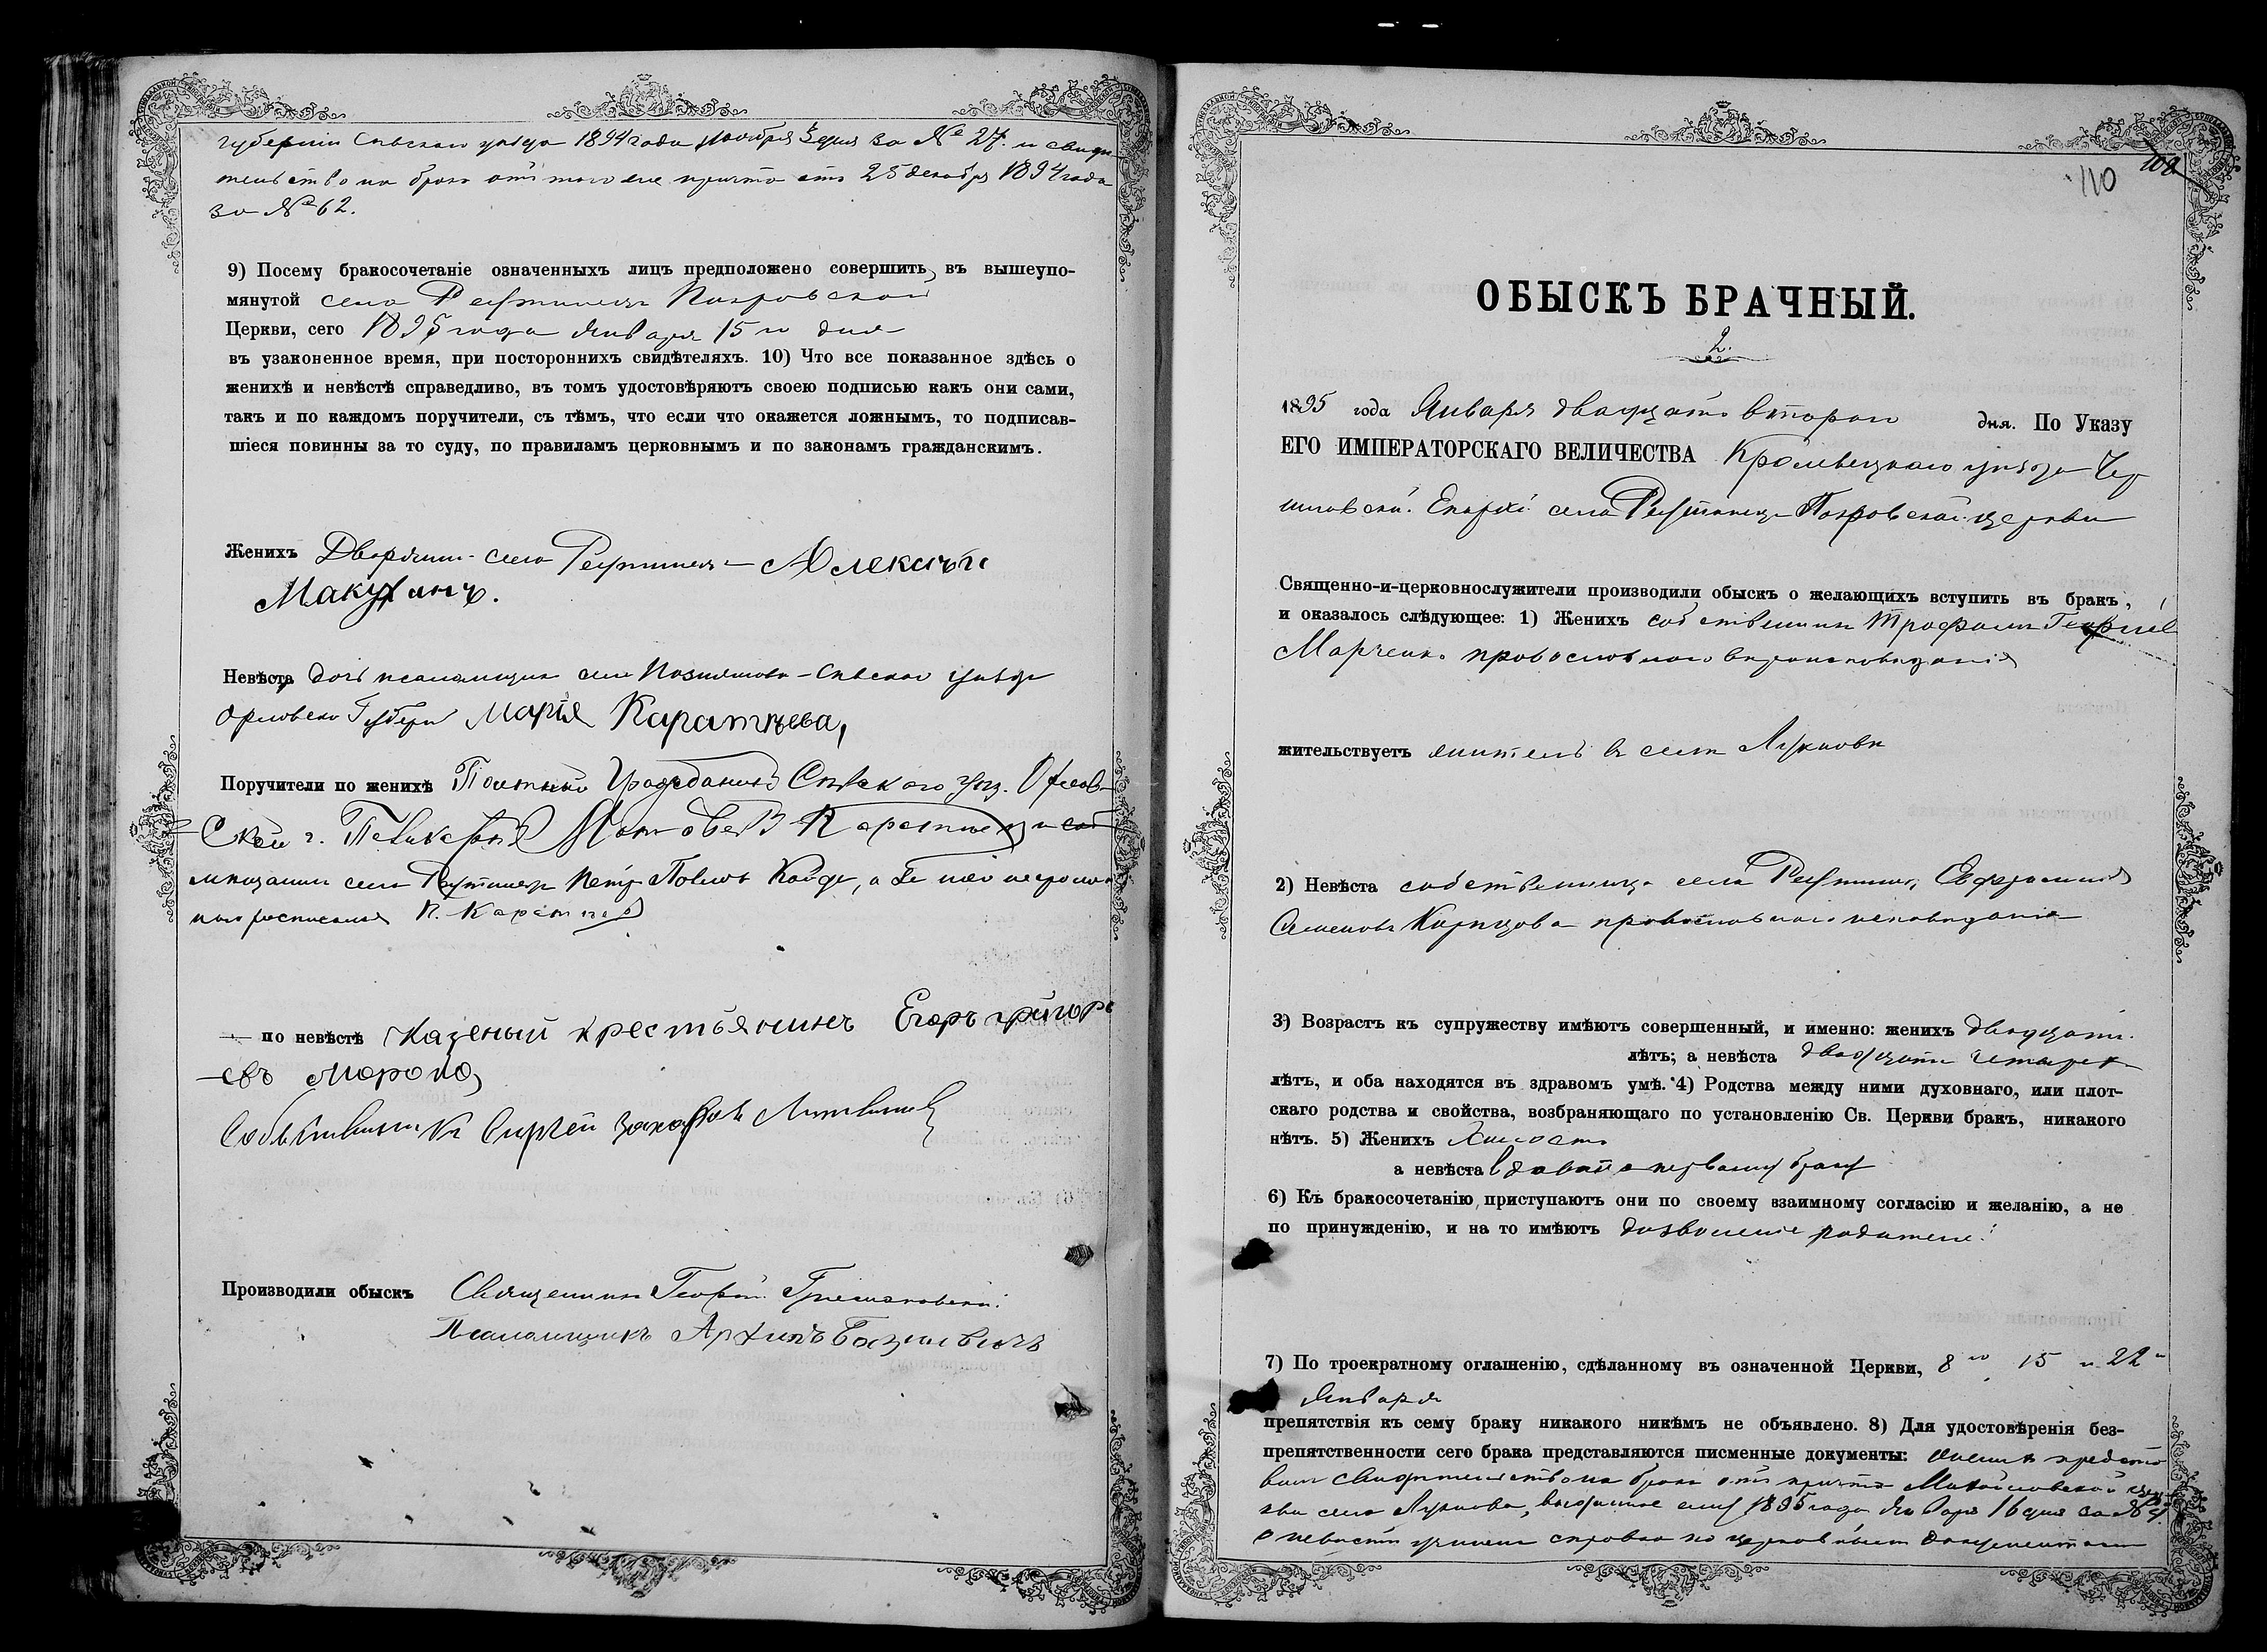 губерніи Сѣвскаго уѣзда 1894 года Ноября 3 дня за № 27. и свидѣ-
тельство на бракъ отъ того же причта отъ 25 декабря 1894 года
за № 62.
9) Посему бракосочетаніе означенныхъ лицъ предположено совершить, въ вышеупо-
мянутой села Реутинецъ Покровской
Церкви, сего 1895 года Января 15 го дня
въ узаконенное время, при постороннихъ свидѣтеляхъ. 10) Что все показанное здѣсь о
женихѣ и невѣстѣ справедливо, въ томъ удостовѣряютъ своею подписью какъ они сами,
такъ и по каждомъ поручители, съ тѣмъ, что если что окажется ложнымъ, то подписав-
шіеся повинны за то суду, по правиламъ церковнымъ и по законамъ гражданскимъ.
Женихъ Дворянинъ села Реутинецъ Алексѣй
Макухинъ.
Невѣста дочь псаломщика села Сѣвскаго уѣзда
Орловской Губерн Марія Каратѣева,
Поручители по женихѣ Почтный Гражданинъ Сѣвскаго уѣз. Орлов-
ской г. и соб
села Реутинецъ Петръ Павловъ а за него неграмот
наго росписался П.
по невѣстѣ Казеный крестьянинъ Егоръ григорь
евъ
Собственникъ Сергѣй Захаровъ Литвиновъ
Производили обыскъ Священникъ Георгій
Псаломщикъ Архипъ
110
109
ОБЫСКЪ БРАЧНЫЙ.
2.
1895 года Января двадцать второго дня. По Указу
ЕГО ИМПЕРАТОРСКАГО ВЕЛИЧЕСТВА Кролевецкаго уѣзда Чер
ниговской Епархіи села Реутинецъ Покровской церкви
Священно-и-церковнослужители производили обыскъ о желающихъ вступить въ бракъ,
и оказалось слѣдующее: 1) Женихъ собственникъ Трофимъ Георгіев
Марченко православнаго вѣроисповѣданія
жительствуетъ житель в селѣ Лукнова
2) Невѣста собственница села Реутинецъ Евфросинія
Семенова православнаго исповѣданія
3) Возрастъ къ супружеству имѣютъ совершенный, и именно: женихъ двадцати
лѣтъ; а невѣста двадцати четырех
лѣтъ, и оба находятся въ здравомъ умѣ. 4) Родства между ними духовнаго, или плот-
скаго родства и свойства, возбраняющаго по установленію Св. Церкви бракъ, никакого
нѣтъ. 5) Женихъ холостъ
а невѣста вдова по первому браку
6) Къ бракосочетанію приступаютъ они по своему взаимному согласію и желанію, а не
по принужденію, и на то имѣютъ дозволеніе родителей
7) По троекратному оглашенію, сдѣланному въ означенной Церкви, 8 го 15 и 22 и
Января
препятствія къ сему браку никакого никѣмъ не объявлено. 8) Для удостовѣренія без-
препятственности сего брака представляются писменные документы: жених предста
вил свидѣтельство на бракъ отъ причта Михайловской цер
кви села Лукнова, выданное ему 1895 года Января 16 дня за № 4.
о невѣстѣ учинена справка по церковным документам